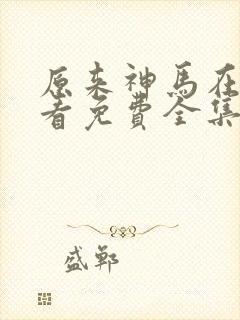 原来神马在
看免费全集
盛郸